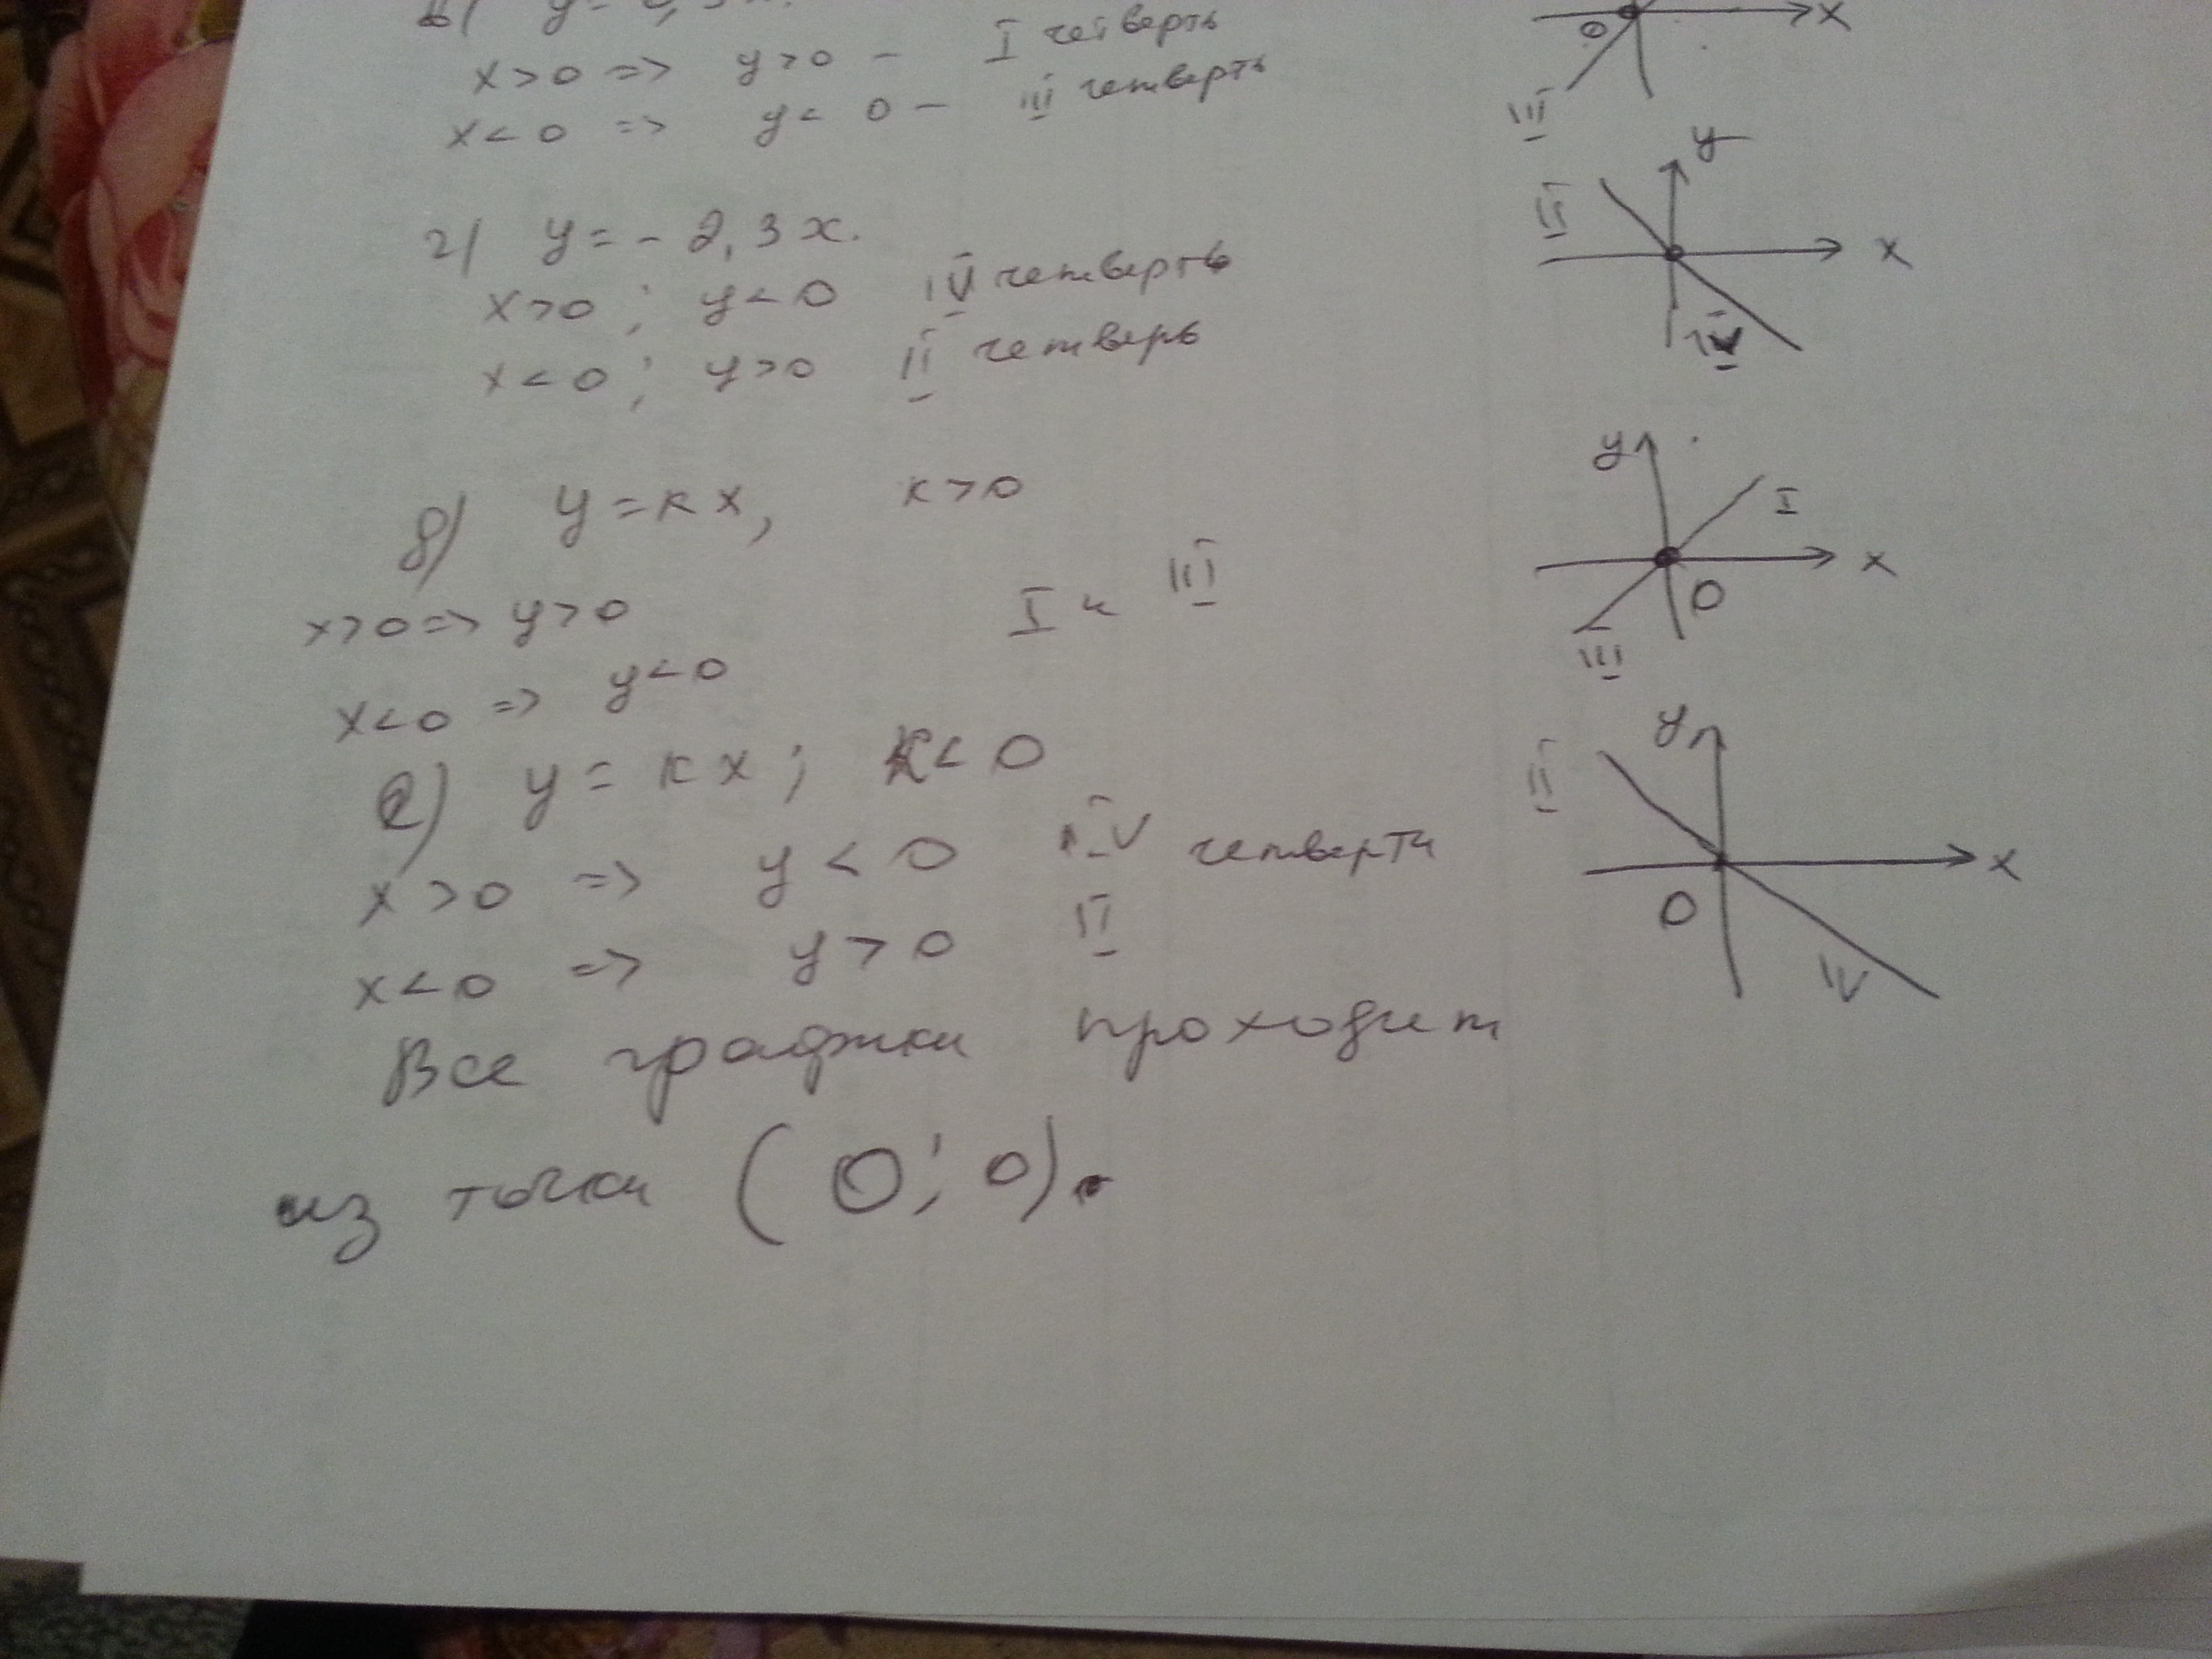 в) y=
x>0 => y>0 – I четверть
x<0 => y<0 – III четверть
0 x
III
г) y=-2,3x.
x>0; y<0 IV четверть
x<0; y>0 II четверь
y
II
x
IV
д) y=кx, к>0
x>0=> y>0 I и III
x<0 => y<0
y
I
x
0
III
е) y=кx; к<0
x>0 => y<0 IV четверти
x<0 => y>0 II
y
II
x
0
IV
Все графики проходит
из точки (0; 0).